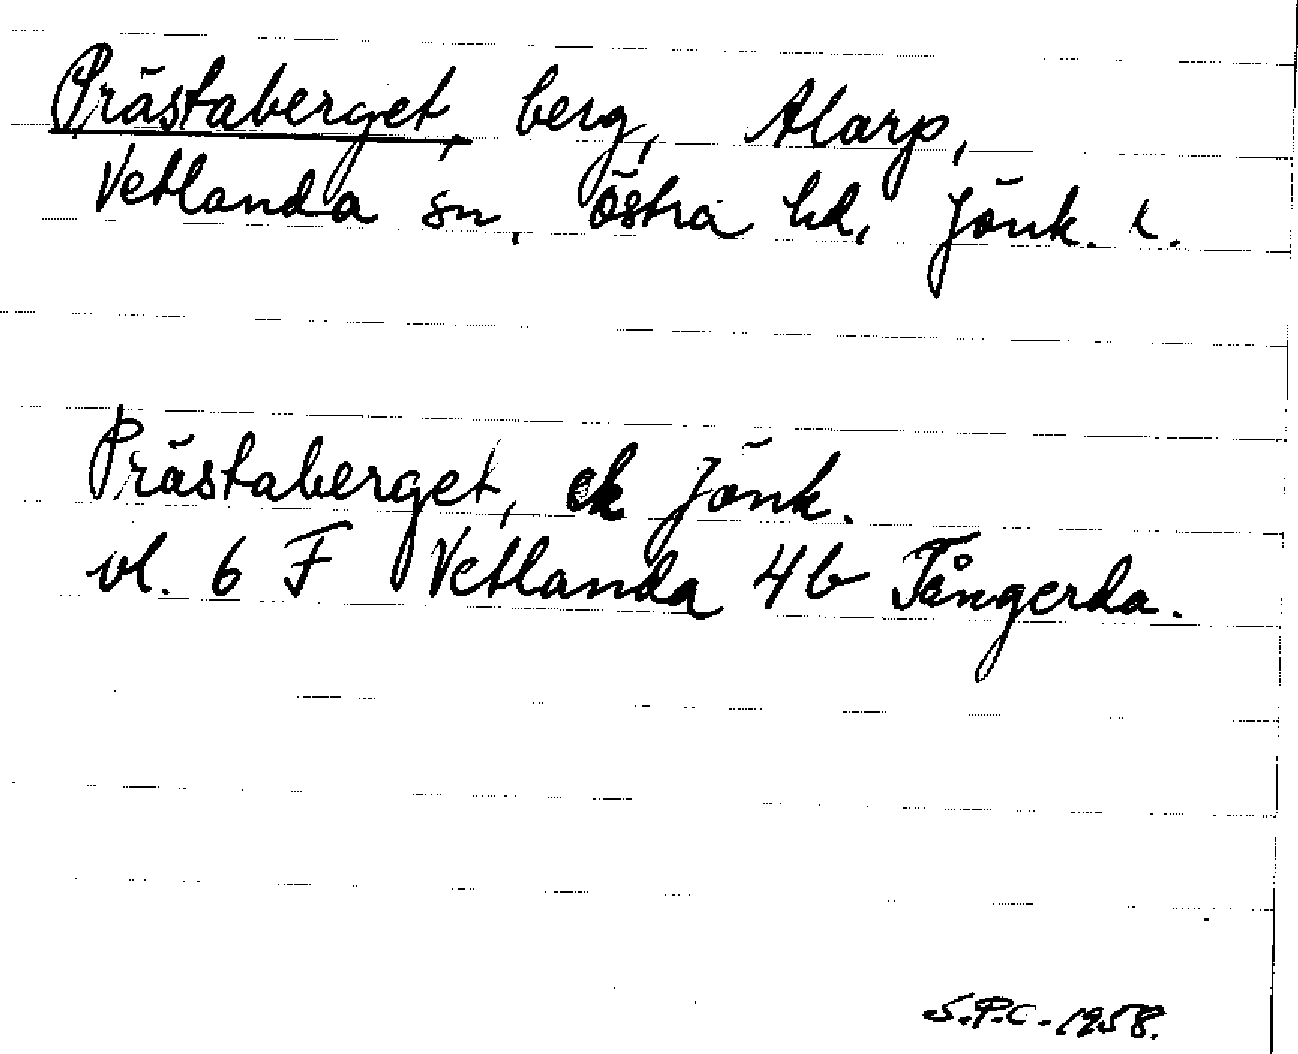 Prästaberget, berg, Alarp,
Vetlanda sn, Östra hd, Jönk. l.
Prästaberget, ek Jönk.
vl. 6 F Vetlanda 4b Tångerda.
S.P.C. 1958.